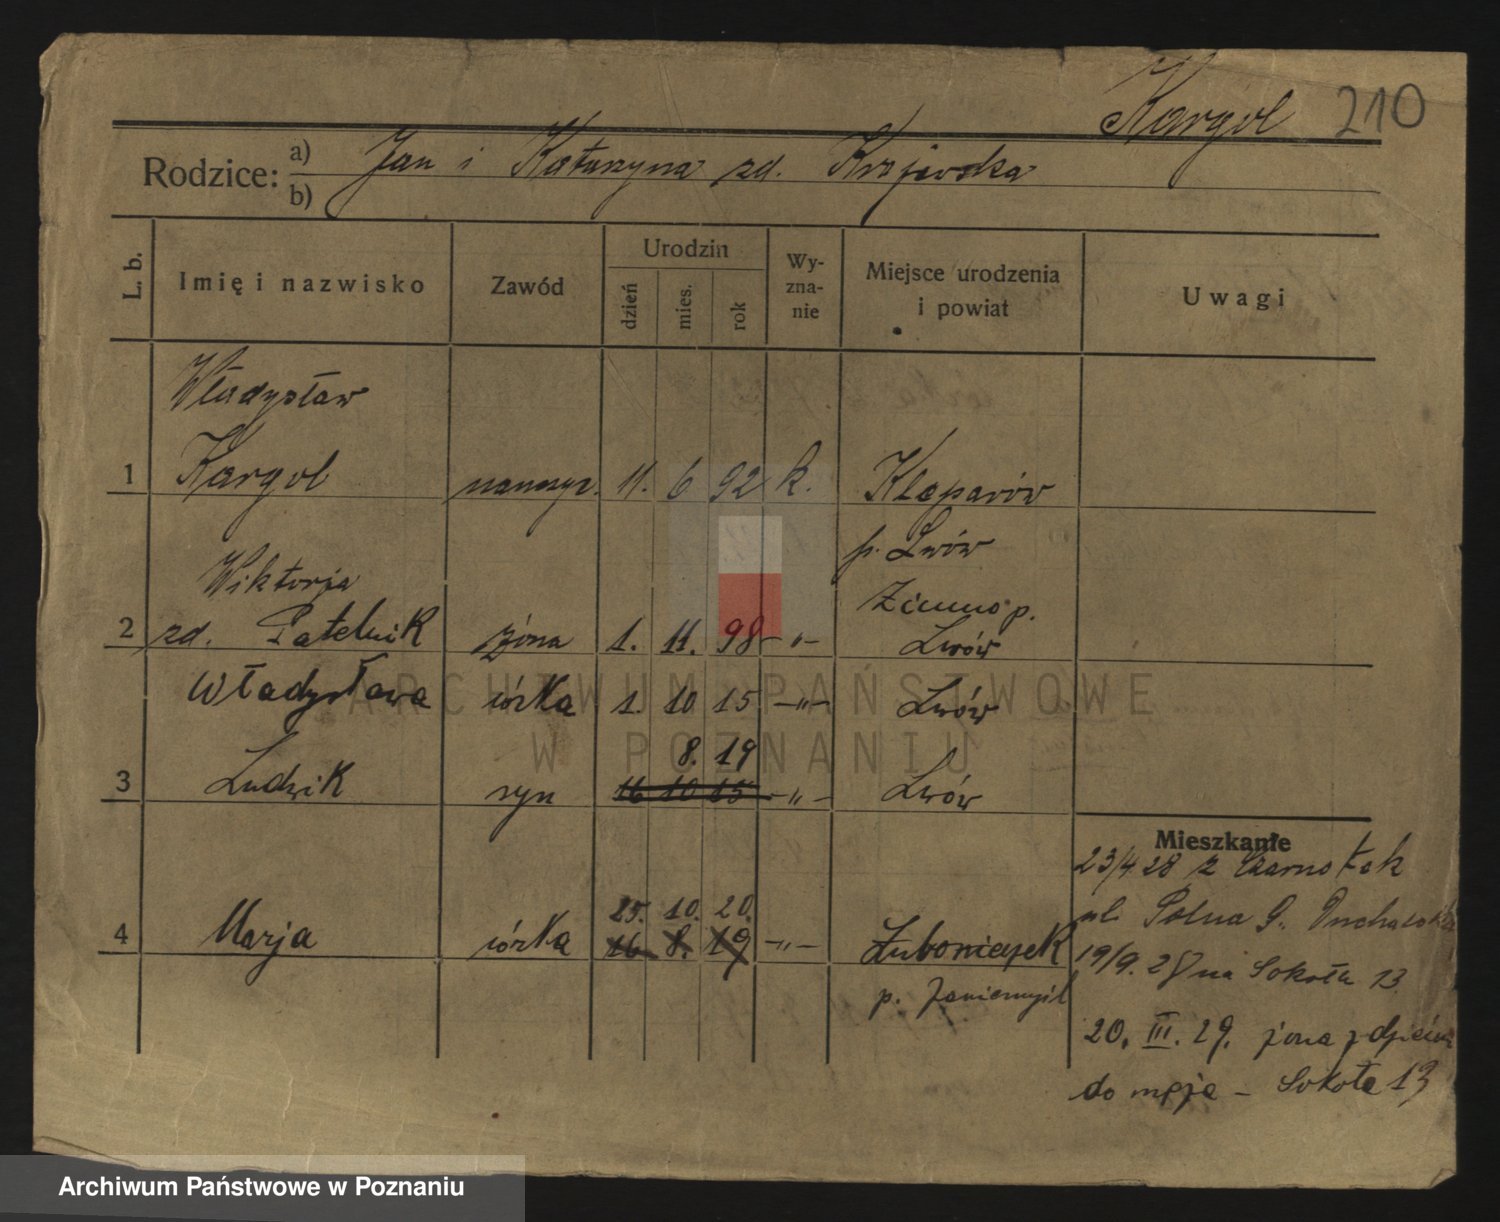 Kargol 210
Rodzice: a) b) Jan i Katarzyna zd. Krajewska
L. b. Imię i nazwisko Zawód Urodzin dzień mies. rok Wy-zna-nie Miejsce urodzenia i powiat Uwagi
Władysław
1 Kargol 11. 6 92 k. Kleparów
p. Lwów
Wiktorja
2 zd. Patelnik żona 1. 11. 98 -„- Zimno p. Lwów
Władysława córka 1. 10 15 -„- Lwów
8. 19
3 Ludwik syn 16 10 15 -„- Lwów
Mieszkanie
23/4 28 z Czarnołek
ul. Polna G.
25. 10. 20.
4 Marja córka 16 8. 19 -„-
19/9. 28 na Sokoła 13.
p.
20. III. 29. żona z dziećmi
do męża – Sokoła 13
ARCHIWUM PAŃSTWOWE
W POZNANIU
Archiwum Państwowe w Poznaniu